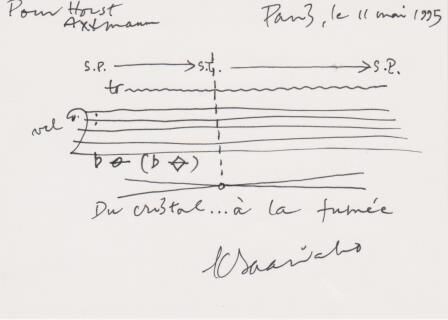 Pour Horst
Axtmann
Paris, le 11 mai 1995
S.P. S.T. S.P.
tr
vcl
Du cristal...à la fumée
KSaariaho